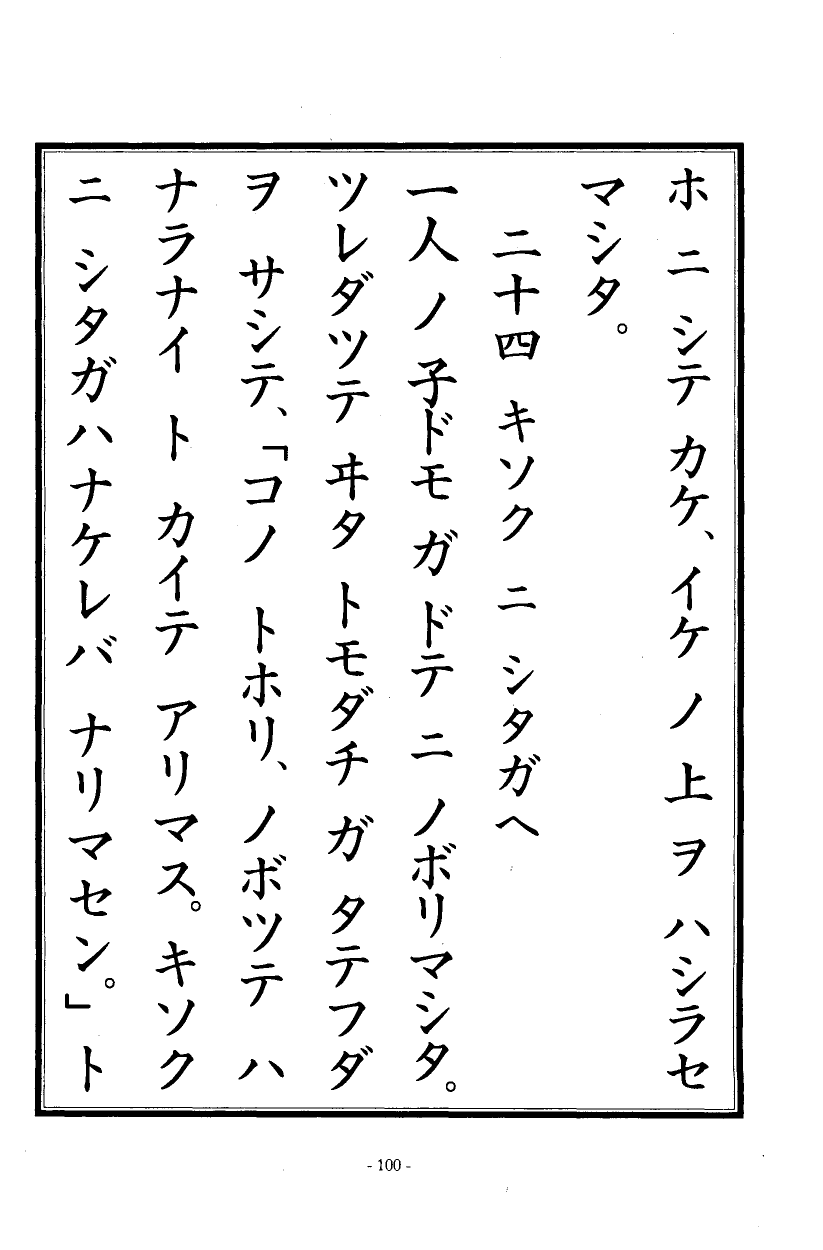 ホ ニ シテ カケ、イケ ノ 上 ヲ ハシラセ
マシタ。
二十四 キソク ニ シタガヘ
一人 ノ 子ドモ ガ ドテ ニ ノボリマシタ。
ツレダツテ ヰタ トモダチ ガ タテフダ
ヲ サシテ、「コノ トホリ、ノボツテ ハ
ナラナイ ト カイテ アリマス。キソク
ニ シタガハナケレバ ナリマセン。」ト
- 100 -